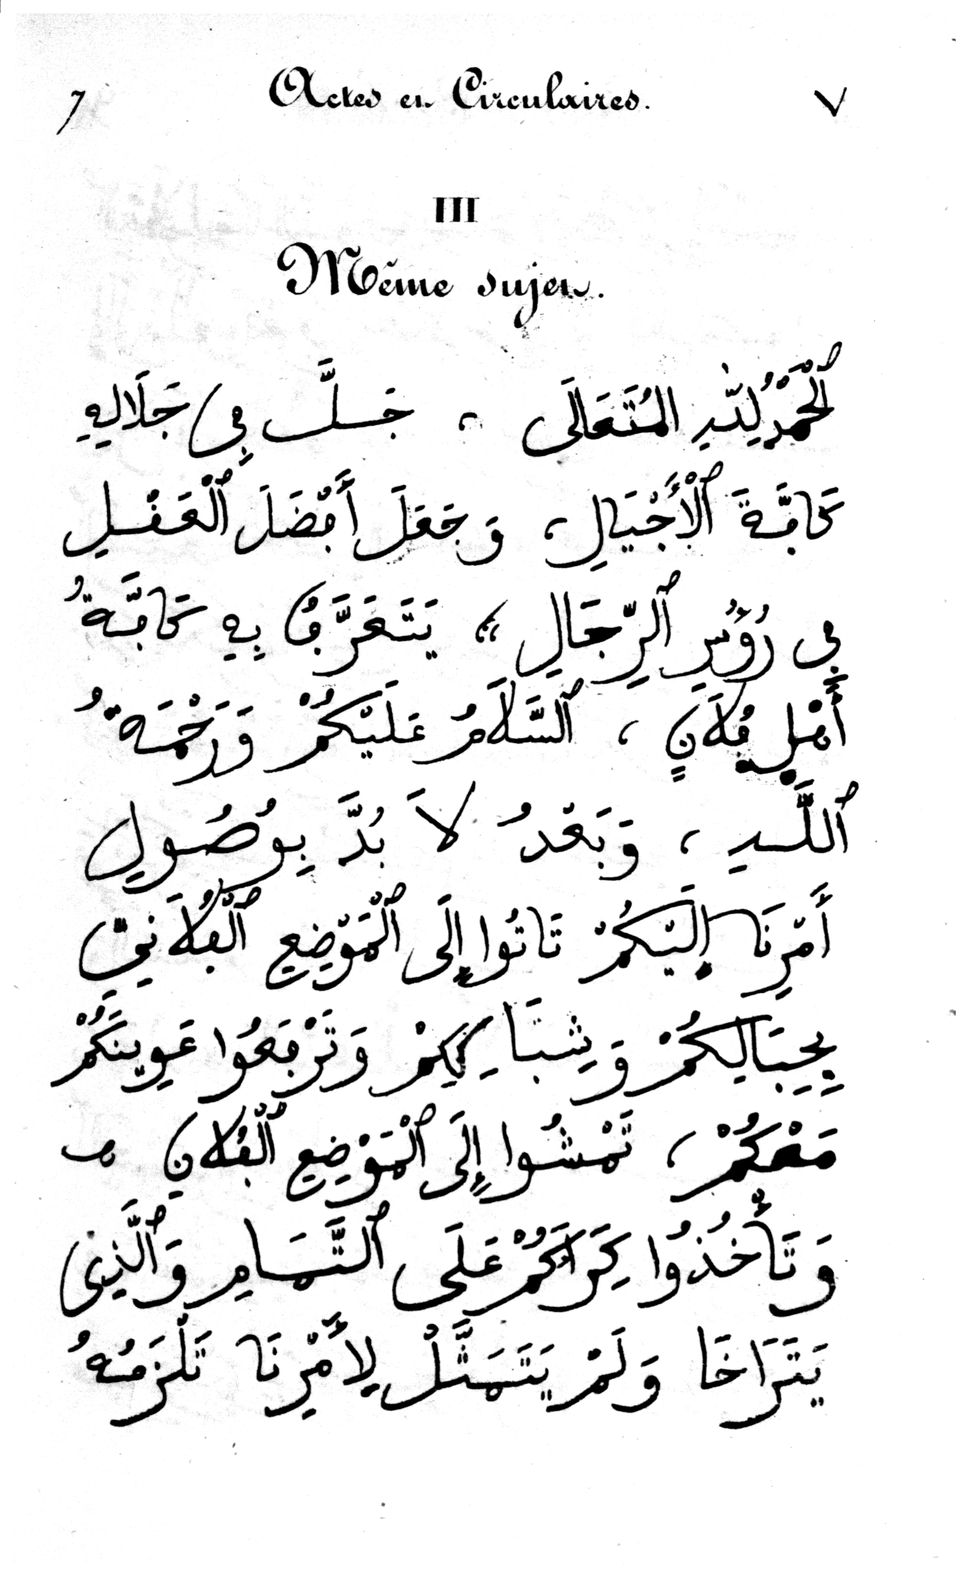 7 Actes et Circulaires. ٧
III
Même sujet.
اَلْحَمْدُ لِلَّهِ الْمُتَعَالَى ، جَلَّ فِى جَلَالِهِ
كَافَّةَ اَلْأَجْيَالِ ، وَجَعَلَ أَفْضَلَ اَلْعَقْلِ
فِى رُؤُسِ اَلرِّجَالِ ، يَتَعَرَّفُ بِهِ كَافَّةُ
أَهْلِ فُلَانٍ ، اَلسَّلَامُ عَلَيْكُمْ وَرَحْمَةُ
اَللَّهِ ، وَبَعْدُ لَا بُدَّ بِوُصُولِ
أَمْرِنَا إِلَيْكُمْ تَاتُوا إِلَى اَلْمَوْضِعِ اَلْفُلَانِيِّ
بِحِبَالِكُمْ وَشِبَاكِكِمْ وَتَرْفَعُوا عَوِينَكُمْ
مَعَكُمْ ، تَمْشُوا إِلَى اَلْمَوْضِعِ اَلْفُلَانِ
وَتَأْخُذُوا كِرَاكُمْ عَلَى اَلتَّمَامِ وَاَلَّذِى
يَتَرَاخَا وَلَمْ يَتَمَثَّلْ لِأَمْرِنَا تَلْزَمُهُ